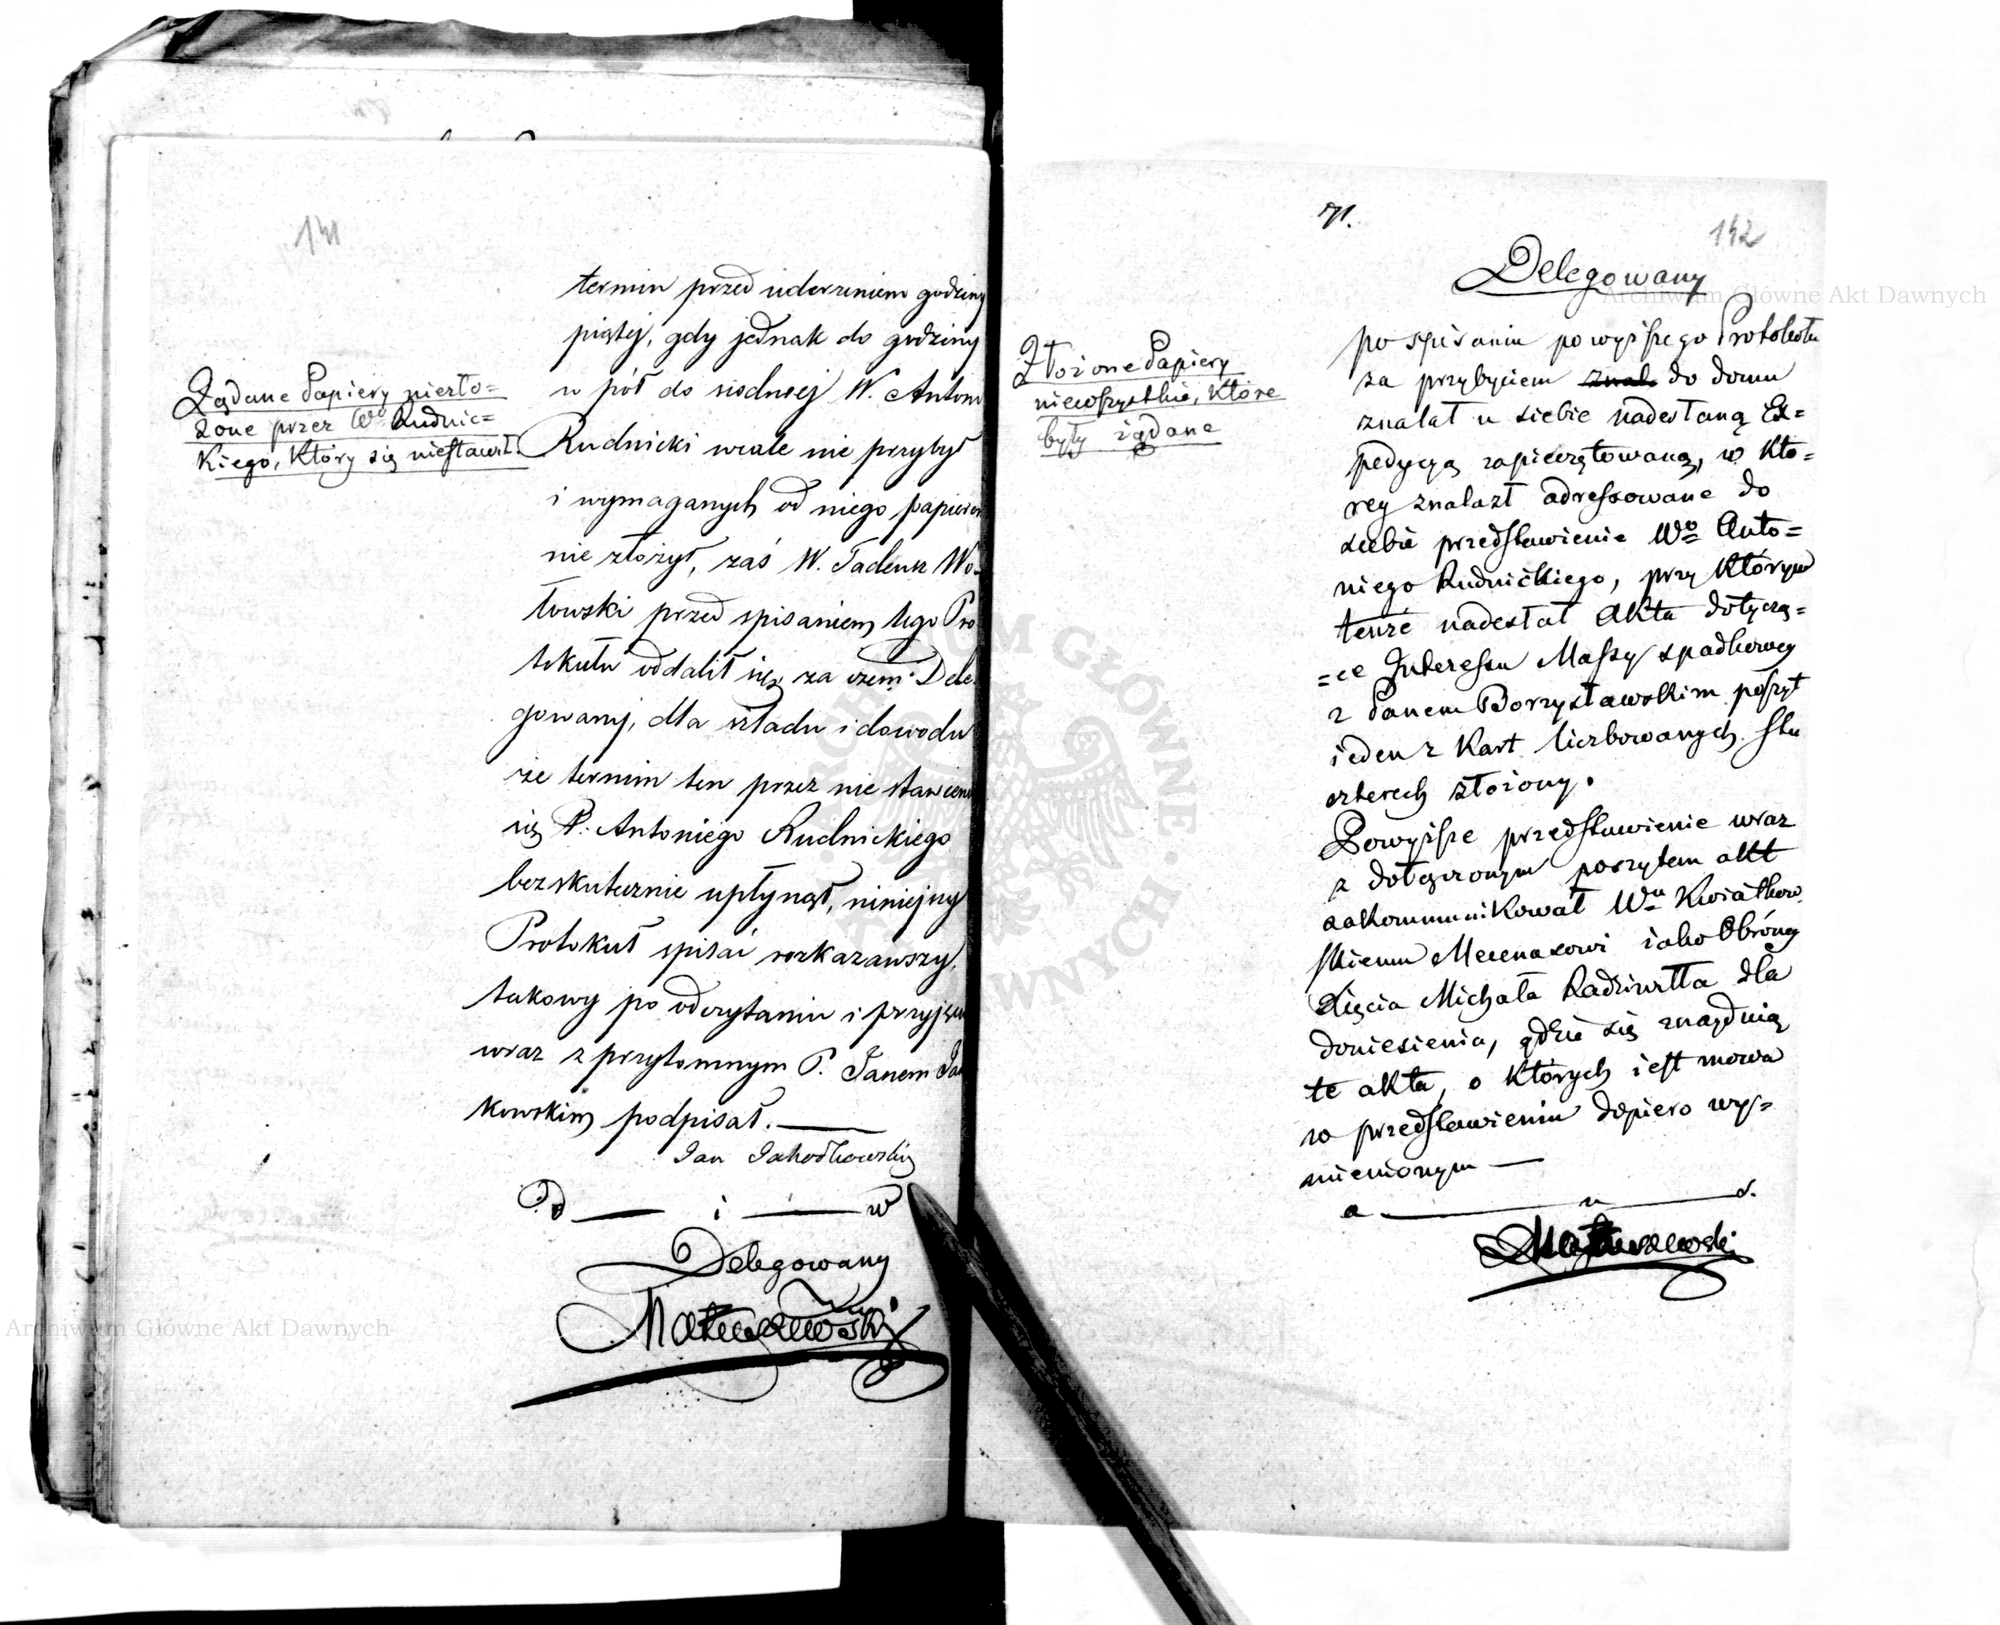 141
Żądane Papiery niezło=
żone przez Wo Rudnic=
kiego, który się niestawił.
termin przed uderzeniem godziny
piątej, gdy jednak do godziny
w pół do siódmej W. Antoni
Rudnicki wcale nie przybył
i wymaganych od niego papierów
nie złożył, zaś W. Tadeusz Wo=
łowski przed spisaniem tego Pro
tokułu oddalił się, za czem Dele
gowany, dla śladu i dowodu
że termin ten przez nie stawienie
się P. Antoniego Rudnickiego
bezskutecznie upłynął, niniejszy
Protokuł spisać rozkazawszy,
takowy po odczytaniu i przyjęciu
wraz z przytomnym P. Janem Ja
kowskim podpisał.
Jan
D i w
Delegowany
Matuszewski
71.
142
Delegowany
Złożone Papiery
niewszystkie, które
były żądane
po spisaniu powyższego Protokołu
za przybyciem znal do domu
znalał u siebie nadesłaną Ex=
pedycyą zapieczętowaną, w kto=
rey znalazł adressowane do
siebie przedstawienie Wo Anto=
niego Rudnickiego, przy którym
tenże nadesłał Akta dotyczą=
=ce Interessu Massy spadkowey
z Panem Borzysławskim poszyt
ieden z kart liczbowanych stu
czterech złożony.
Powyższe przedstawienie wraz
z dołączonym poszytem akt
zakommunikował Wu Kwiatkow
skiemu Mecenasowi iako Obrońcy
Xięcia Michała Radziwiłła dla
doniesienia, gdzie się znayduią
te akta, o których iest mowa
w przedstawieniu dopiero wy=
mienionym
a u s.
Matuszewski
Archiwum Główne Akt Dawnych
Archiwum Główne Akt Dawnych